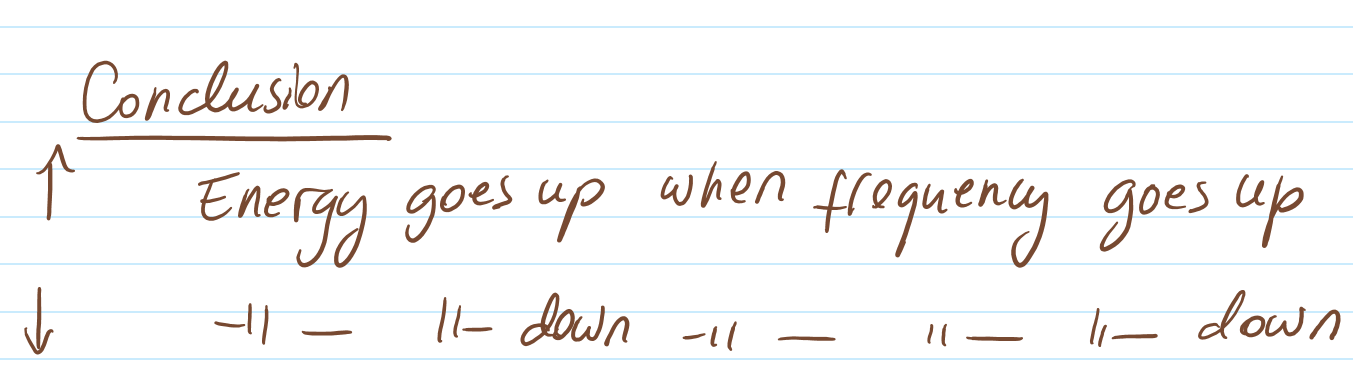 Conclusion
↑ Energy goes up when frequency goes up
↓ -11- 11- down -11- 11- 11- down